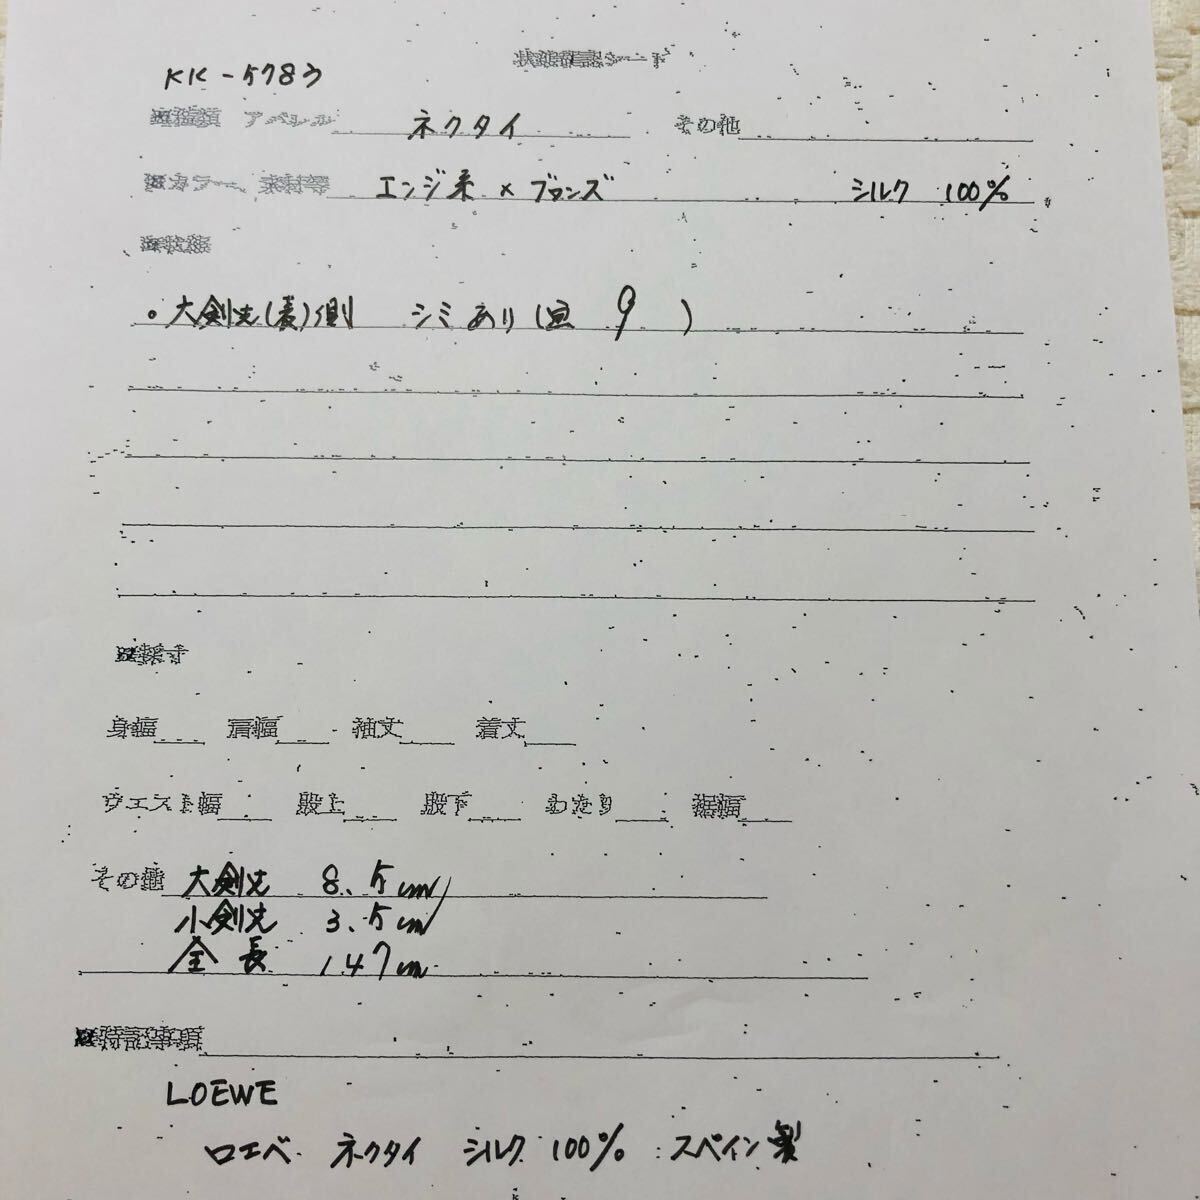 状態確認シート
KK-5783
■種類 アパレル ネクタイ その他
■カラー、素材等 エンジ系 × ブロンズ シルク 100%
■状態
・大剣先(表)側 シミあり(画 9 )
■採寸
身幅 肩幅 袖丈 着丈
ウエスト幅 股上 股下 わたり 裾幅
その他 大剣先 8.5cm
小剣先 3.5cm
全長 147cm
■特記事項
LOEWE
ロエベ ネクタイ シルク 100% スペイン製